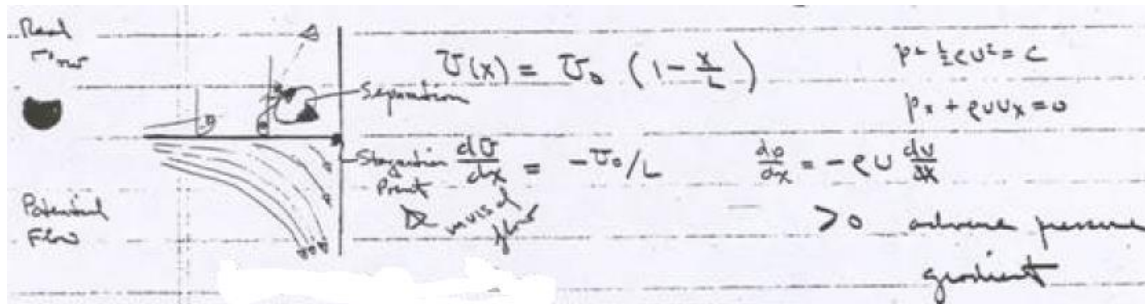 Real
Flow
Separation
U(x) = U₀ (1 - x/L)
p + ½ρU² = C
pₓ + ρUUₓ = 0
Stagnation
Point
inviscid
flow
dU/dx = -U₀/L
dp/dx = -ρU dU/dx
> 0 adverse pressure
gradient
Potential
Flow